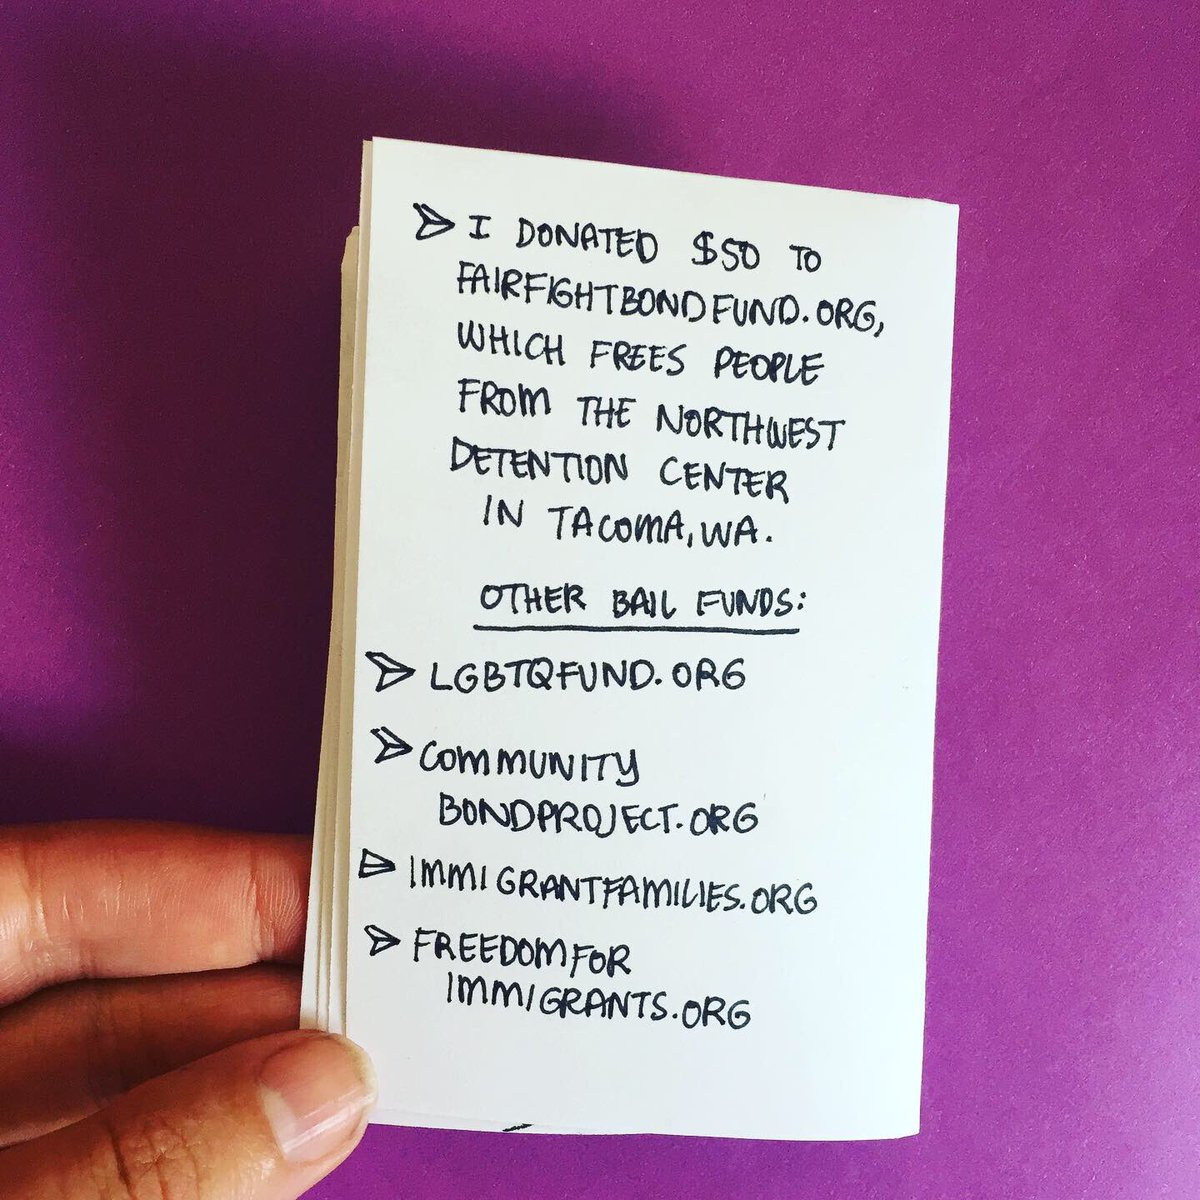 I DONATED $50 TO
FAIRFIGHTBONDFUND.ORG,
WHICH FREES PEOPLE
FROM THE NORTHWEST
DETENTION CENTER
IN TACOMA, WA.
OTHER BAIL FUNDS:
LGBTQFUND.ORG
COMMUNITY
BONDPROJECT.ORG
IMMIGRANTFAMILIES.ORG
FREEDOMFOR
IMMIGRANTS.ORG